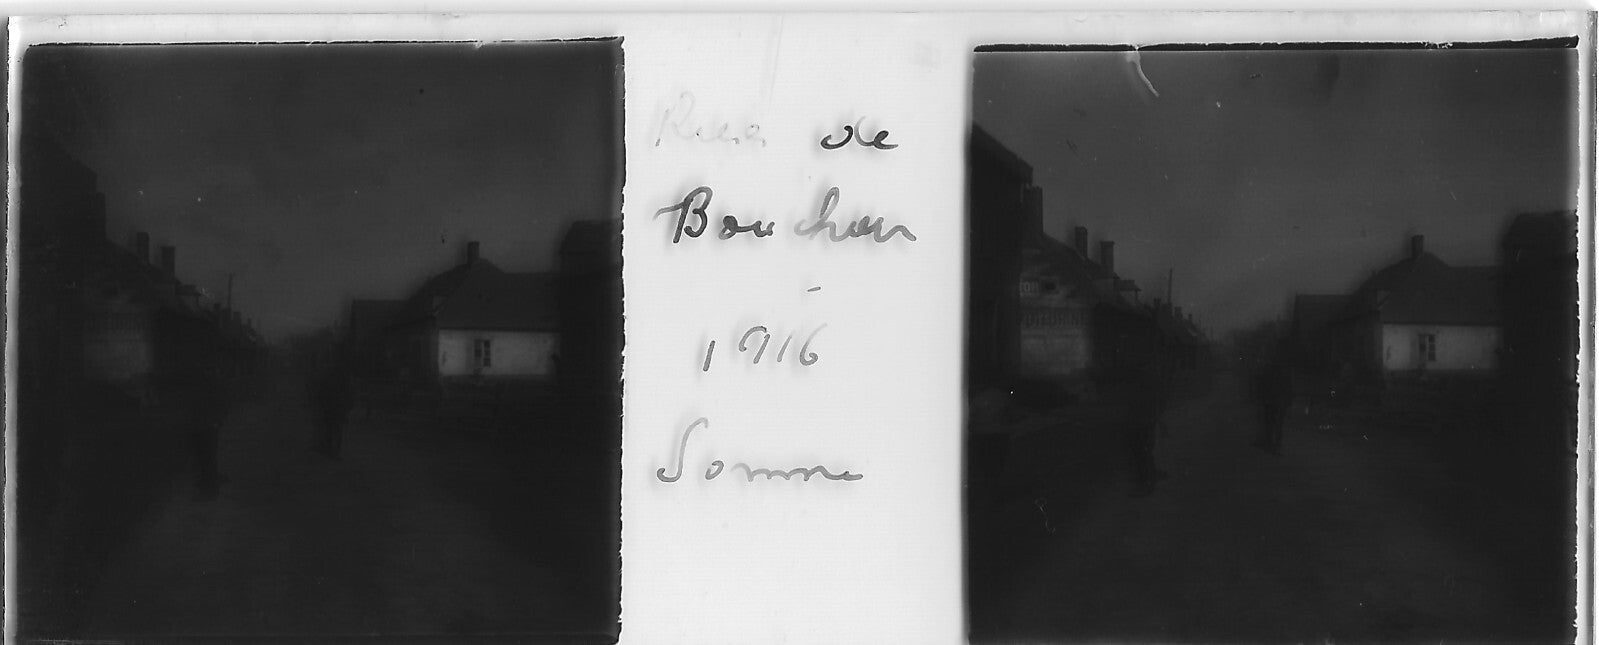 Rues de
Bouchon
-
1916
Somme